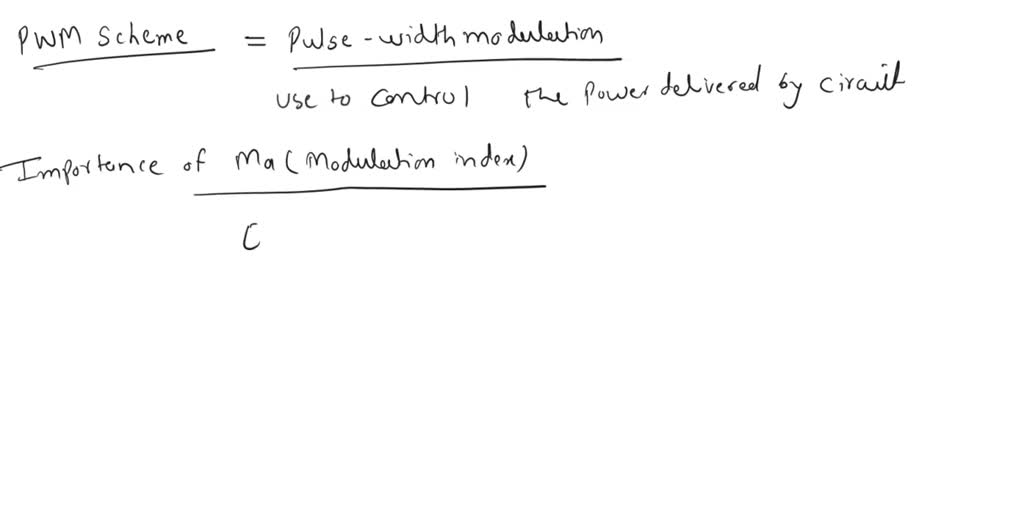 PWM Scheme = Pulse-width modulation
use to control the Power delivered by Circuit
Importance of Ma (Modulation index)
C